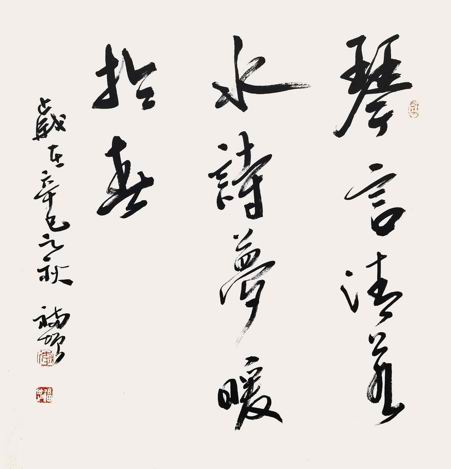 琴言清若
水詩夢暖
於春
歲在辛巳之秋